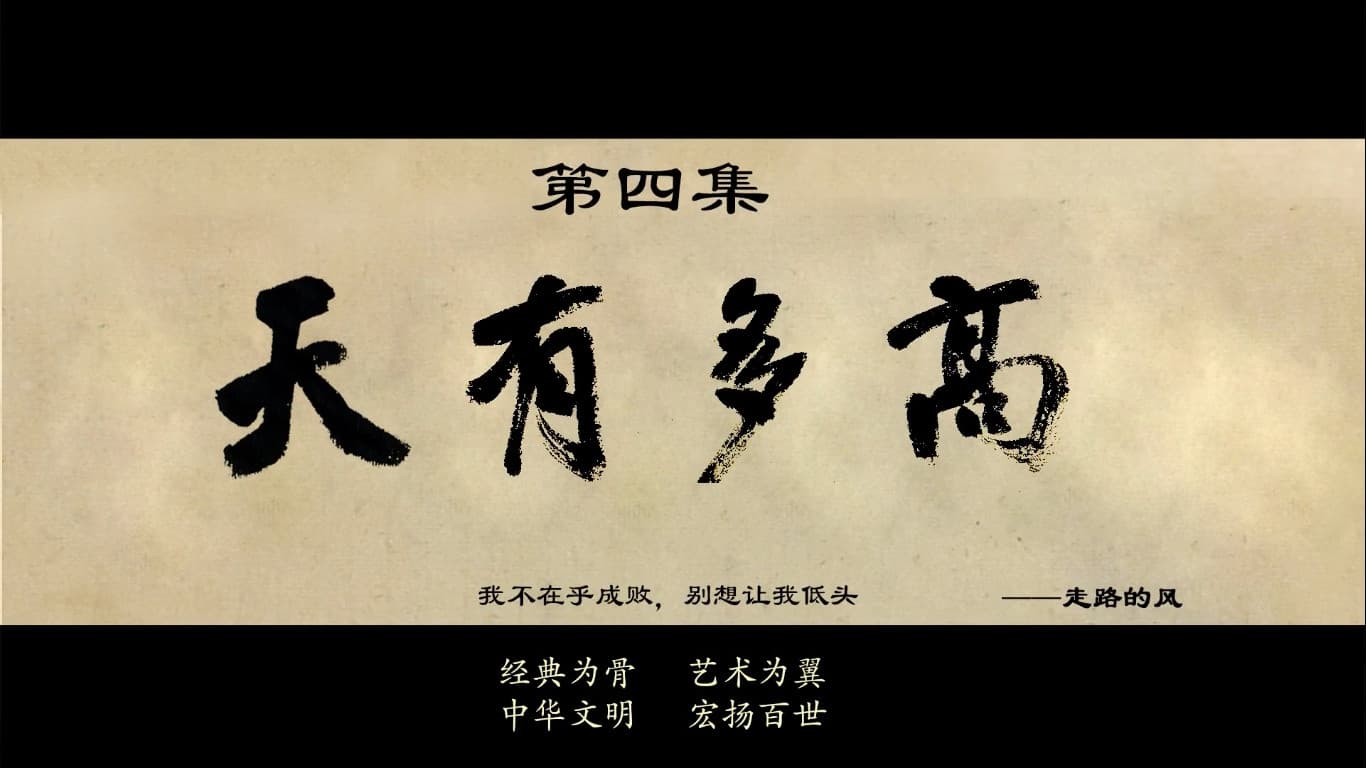 第四集
天有多高
我不在乎成败，别想让我低头 ——走路的风
经典为骨 艺术为翼
中华文明 宏扬百世